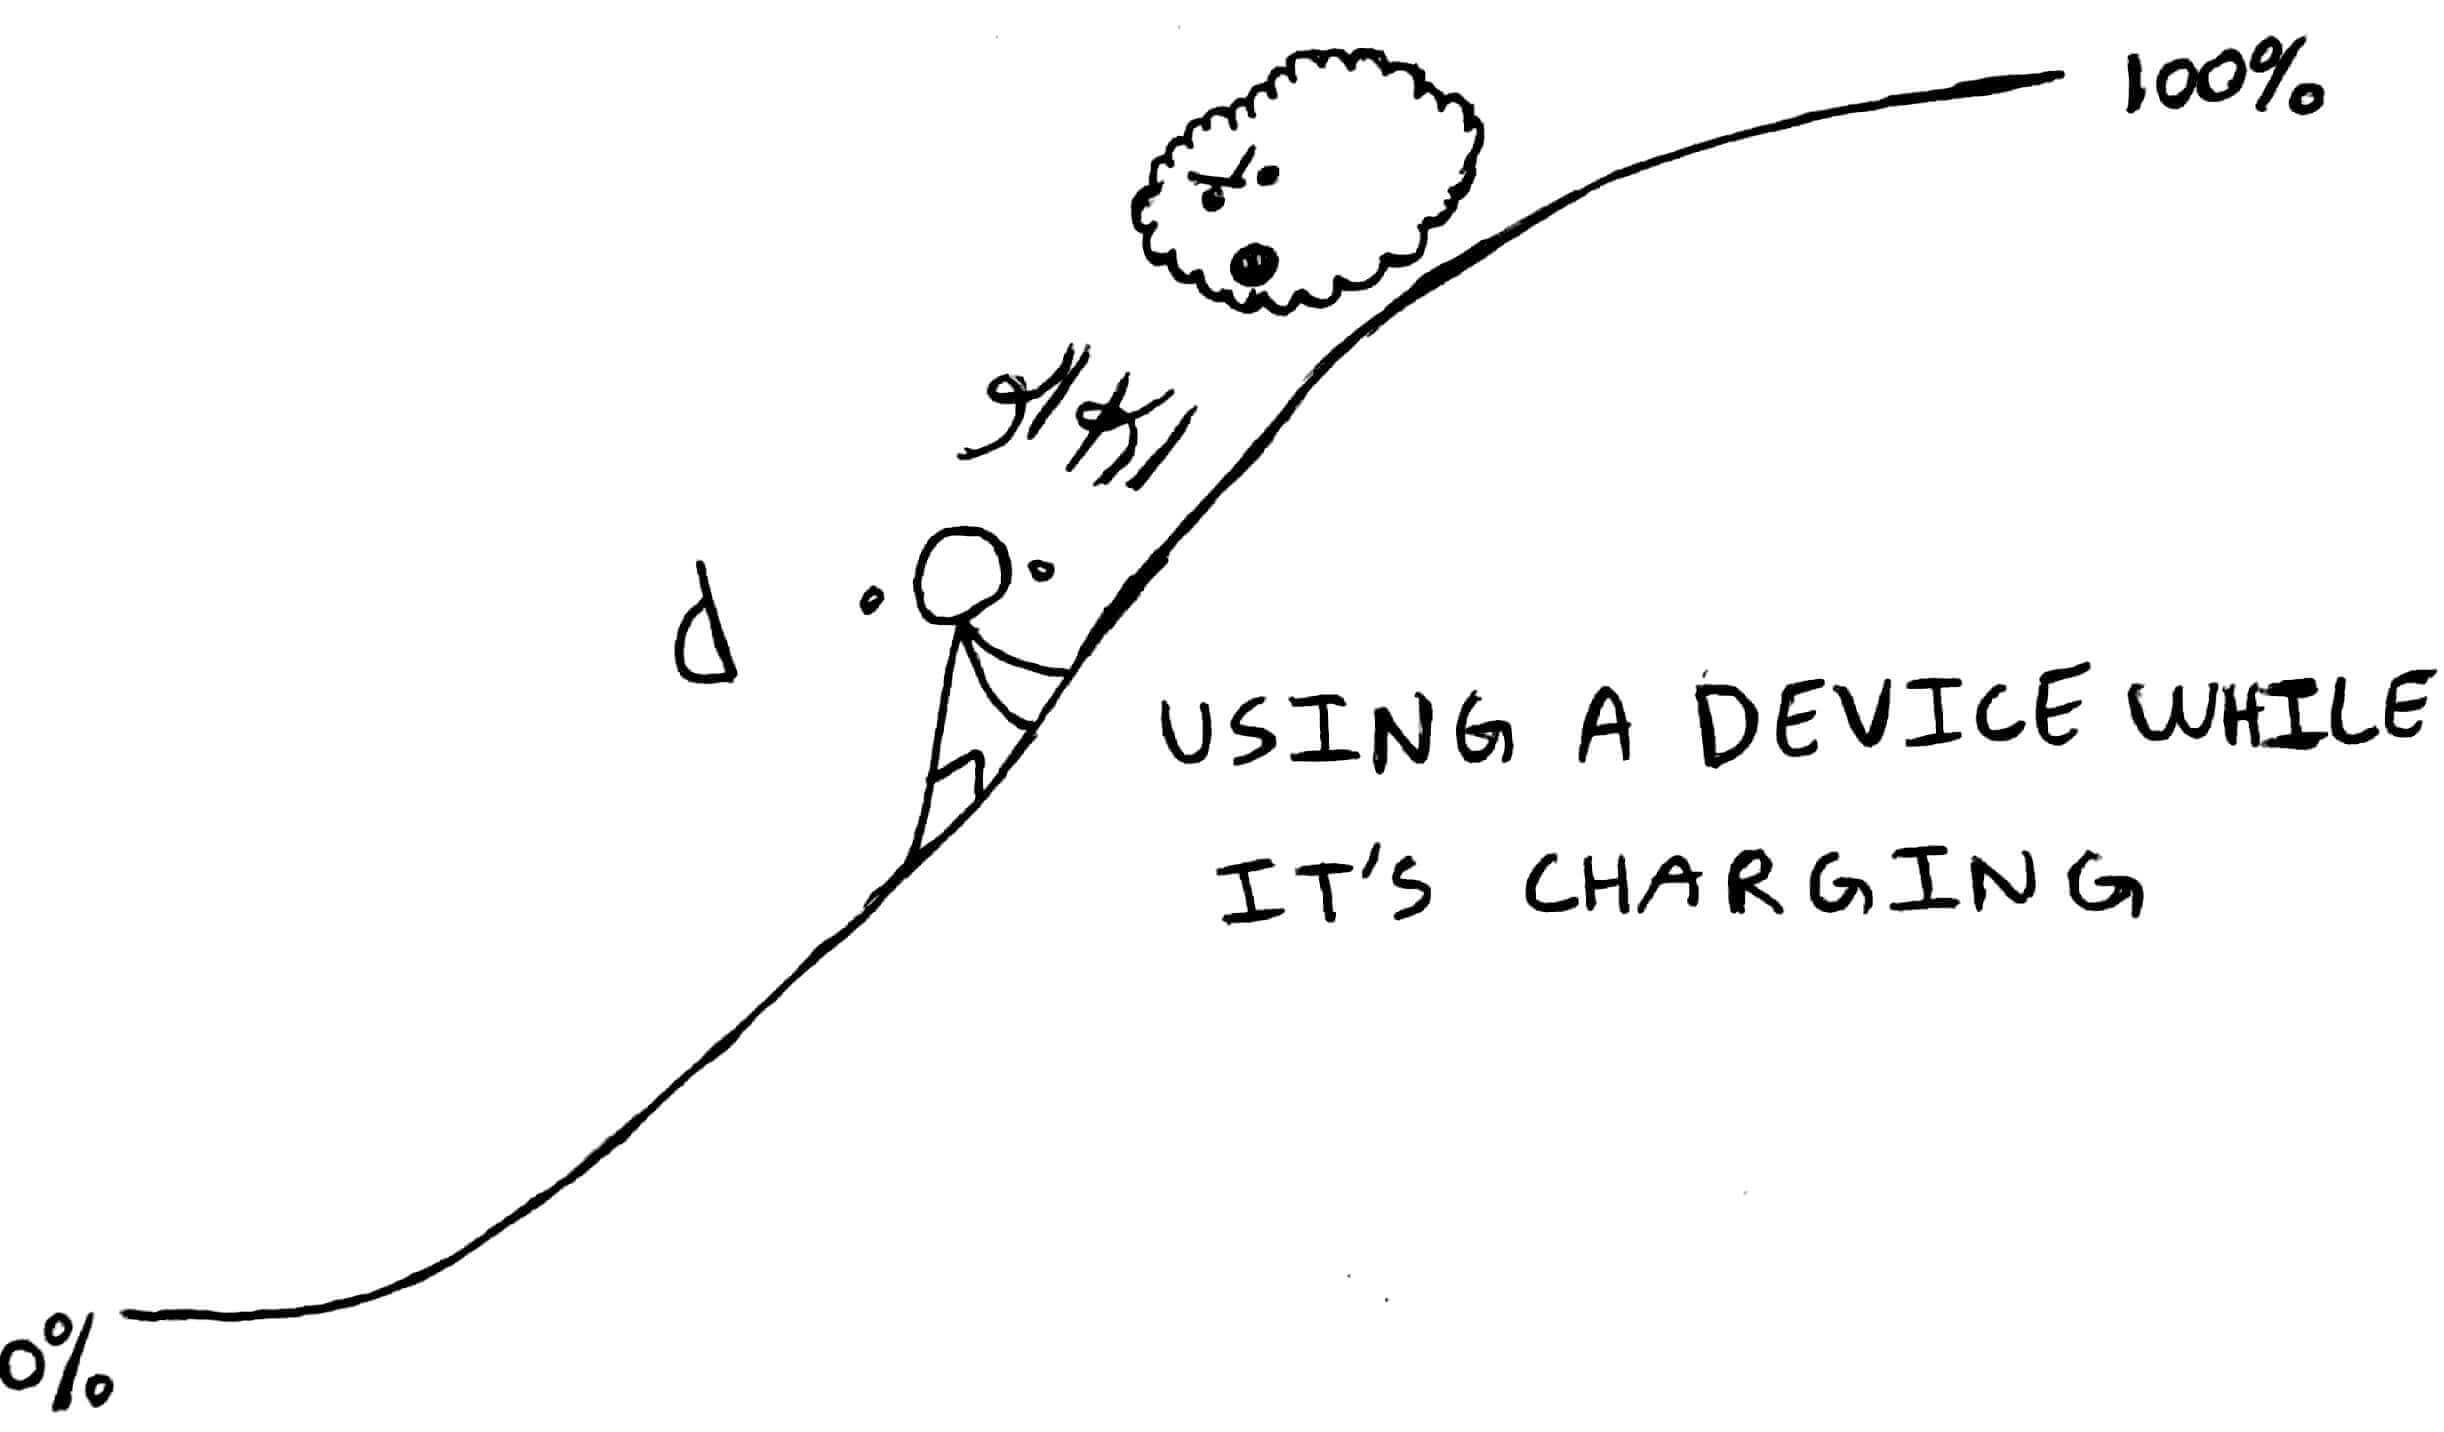 100%
USING A DEVICE WHILE
IT'S CHARGING
0%